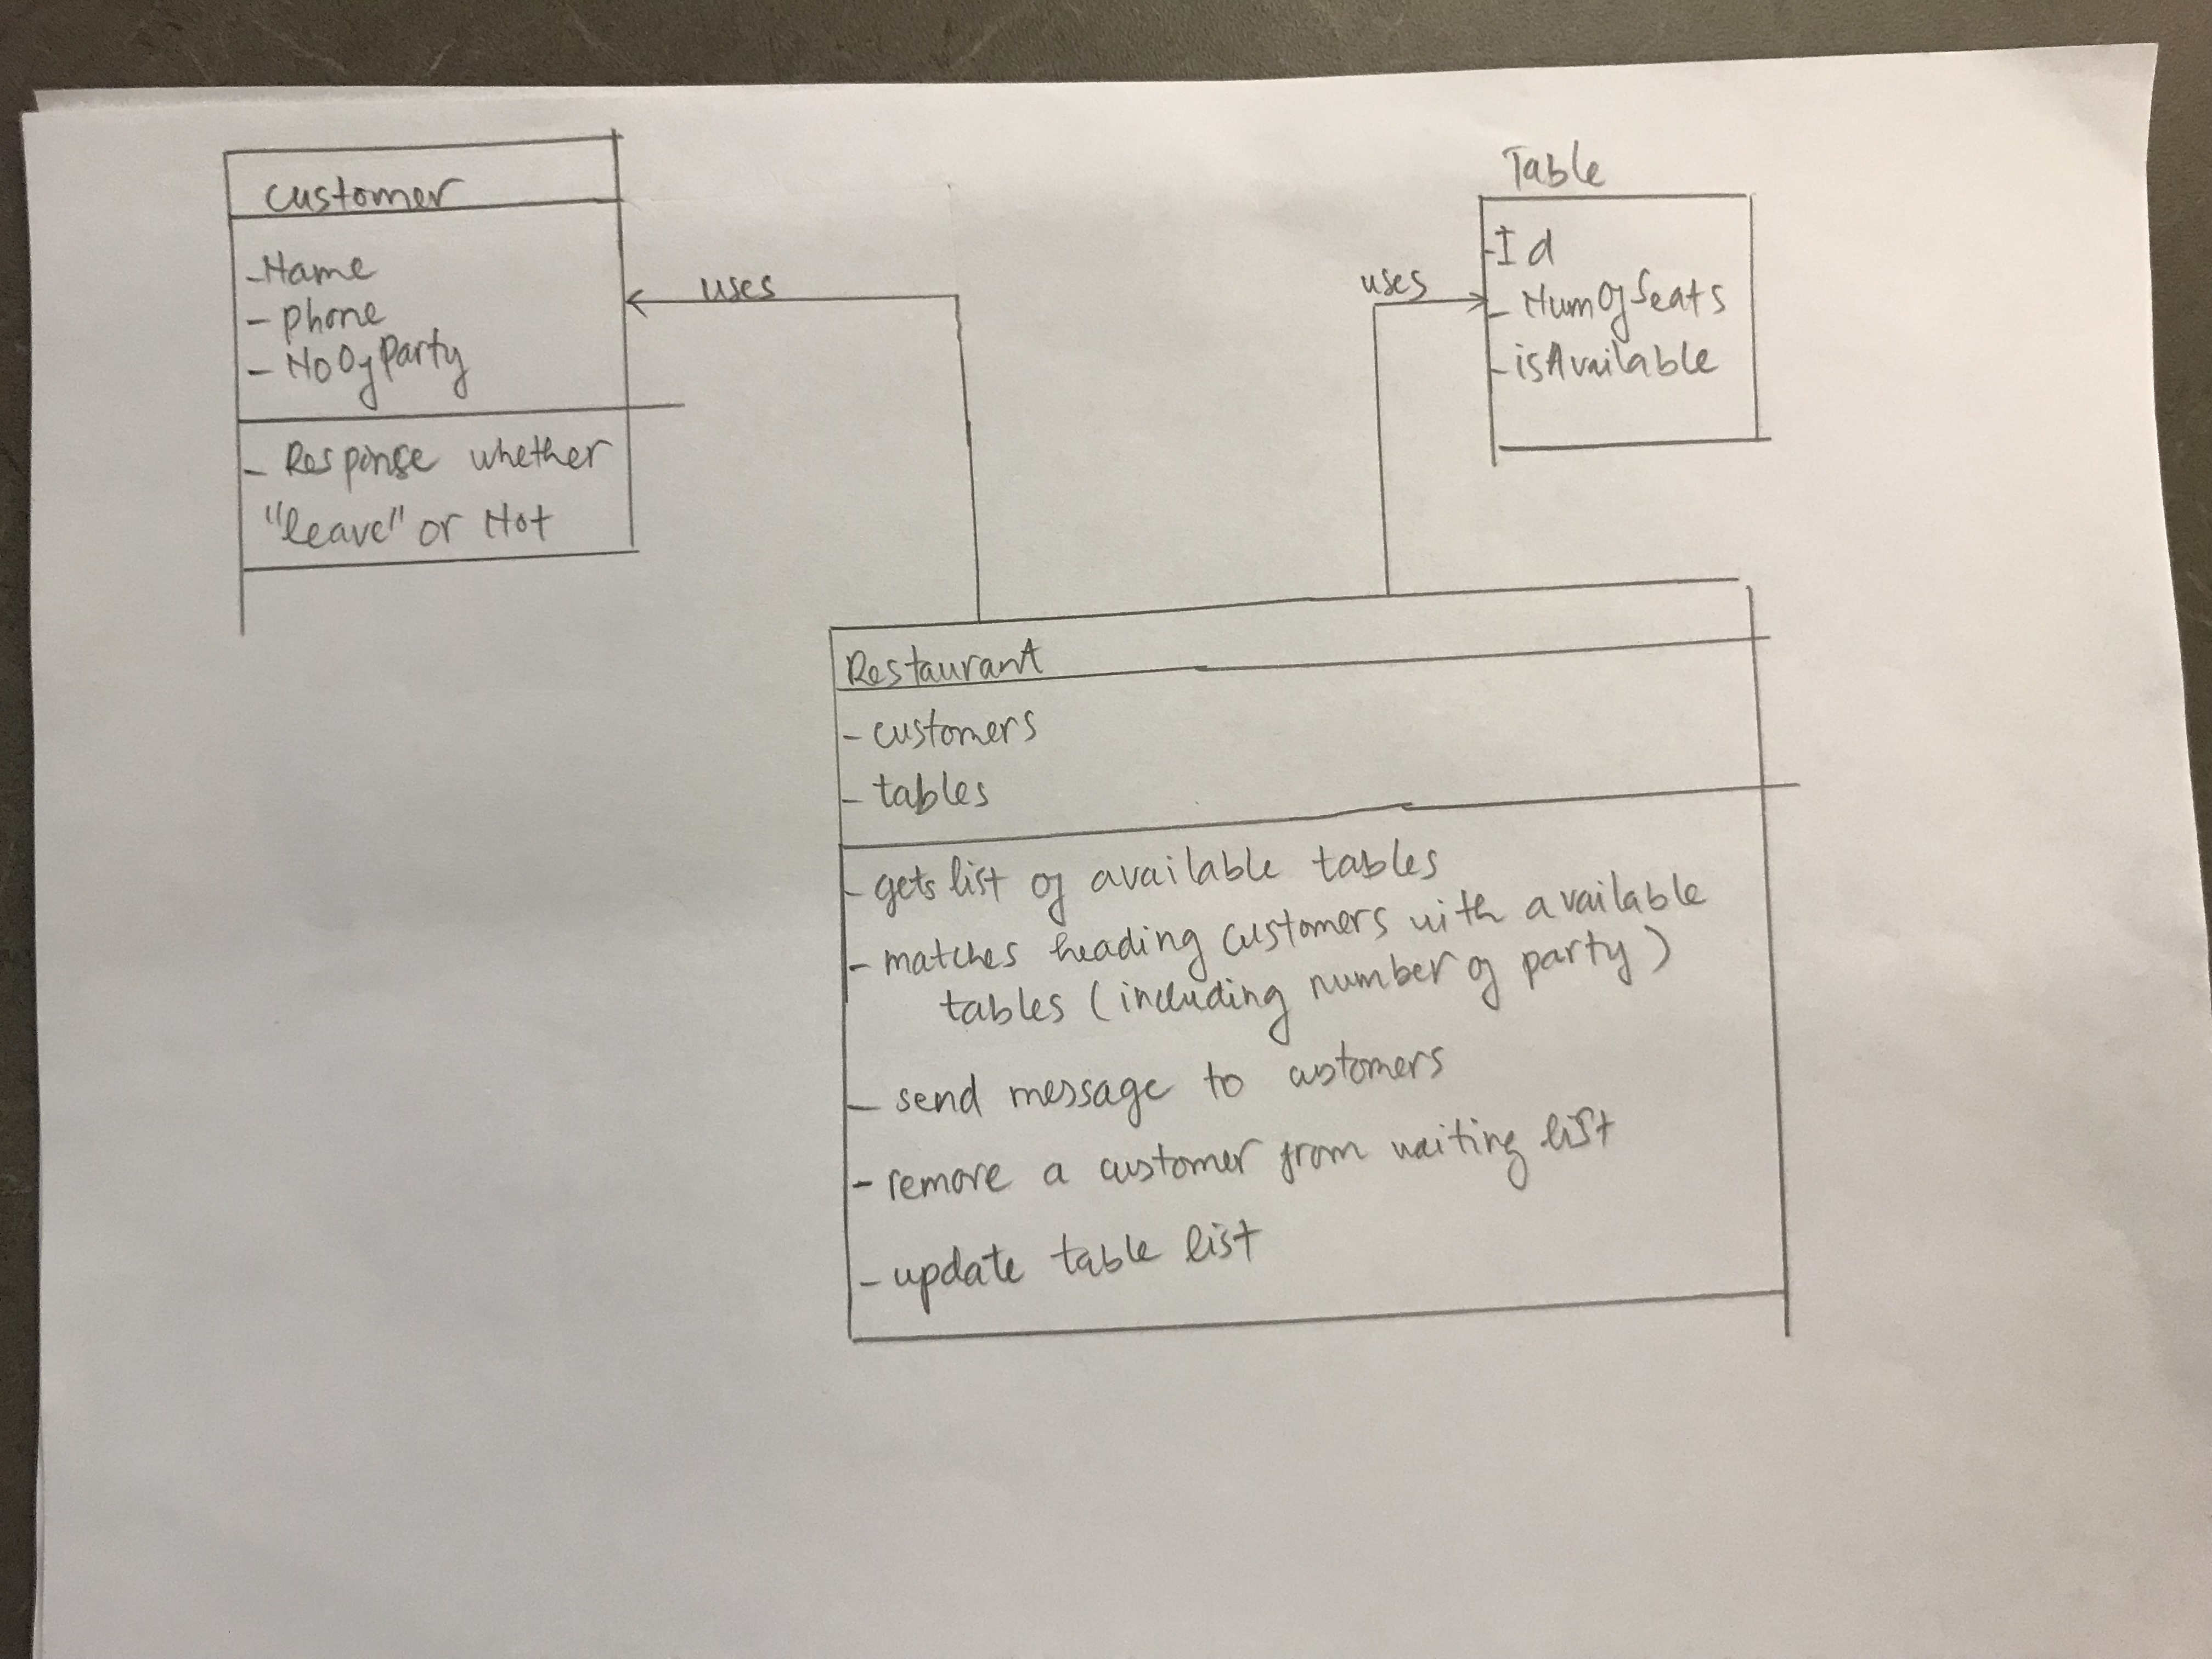 customer
- Name
- phone
- NoOfParty
- Response whether
"leave" or Not
uses
uses
Table
- Id
- NumOfSeats
- isAvailable
Restaurant
- customers
- tables
- gets list of available tables
- matches heading customers with available
tables (including number of party)
- send message to customers
- remove a customer from waiting list
- update table list